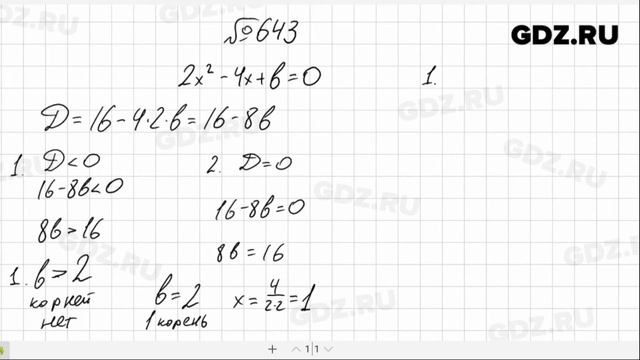 №643
GDZ.RU
2x² - 4x + b = 0
1.
D = 16 - 4·2·b = 16 - 8b
1. D < 0
16 - 8b < 0
8b > 16
1. b > 2
корней
нет
2. D = 0
16 - 8b = 0
8b = 16
b = 2
1 корень
x = 4/2·2 = 1
GDZ.RU
GDZ.RU
GDZ.RU
GDZ.RU
GDZ.RU
GDZ.RU
GDZ.RU
GDZ.RU
GDZ.RU
1|1